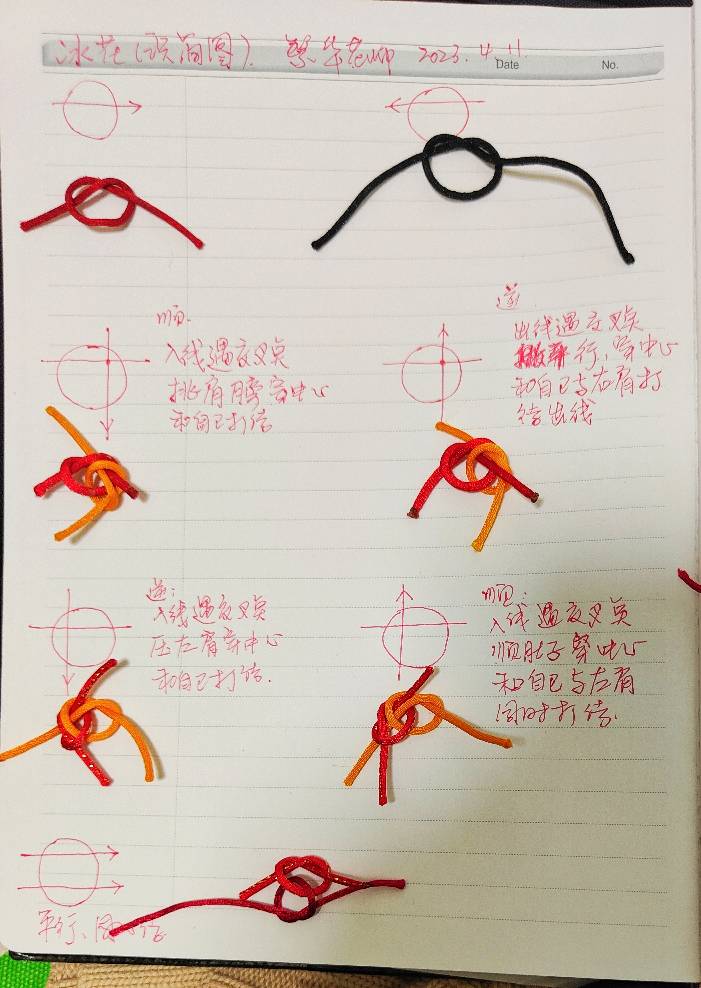 冰花(识简图). 繁华老师 2023.4.11.
Date No.
顺.
入线遇交叉点
挑肩膀穿中心
和自己打结
逆
出线遇交叉点
行、穿中心
和自己与左肩打
结出线
逆:
入线遇交叉点
压左肩穿中心
和自己打结.
顺:
入线遇交叉点
顺肚子穿中心
和自己与左肩
同时打结.
平行、结